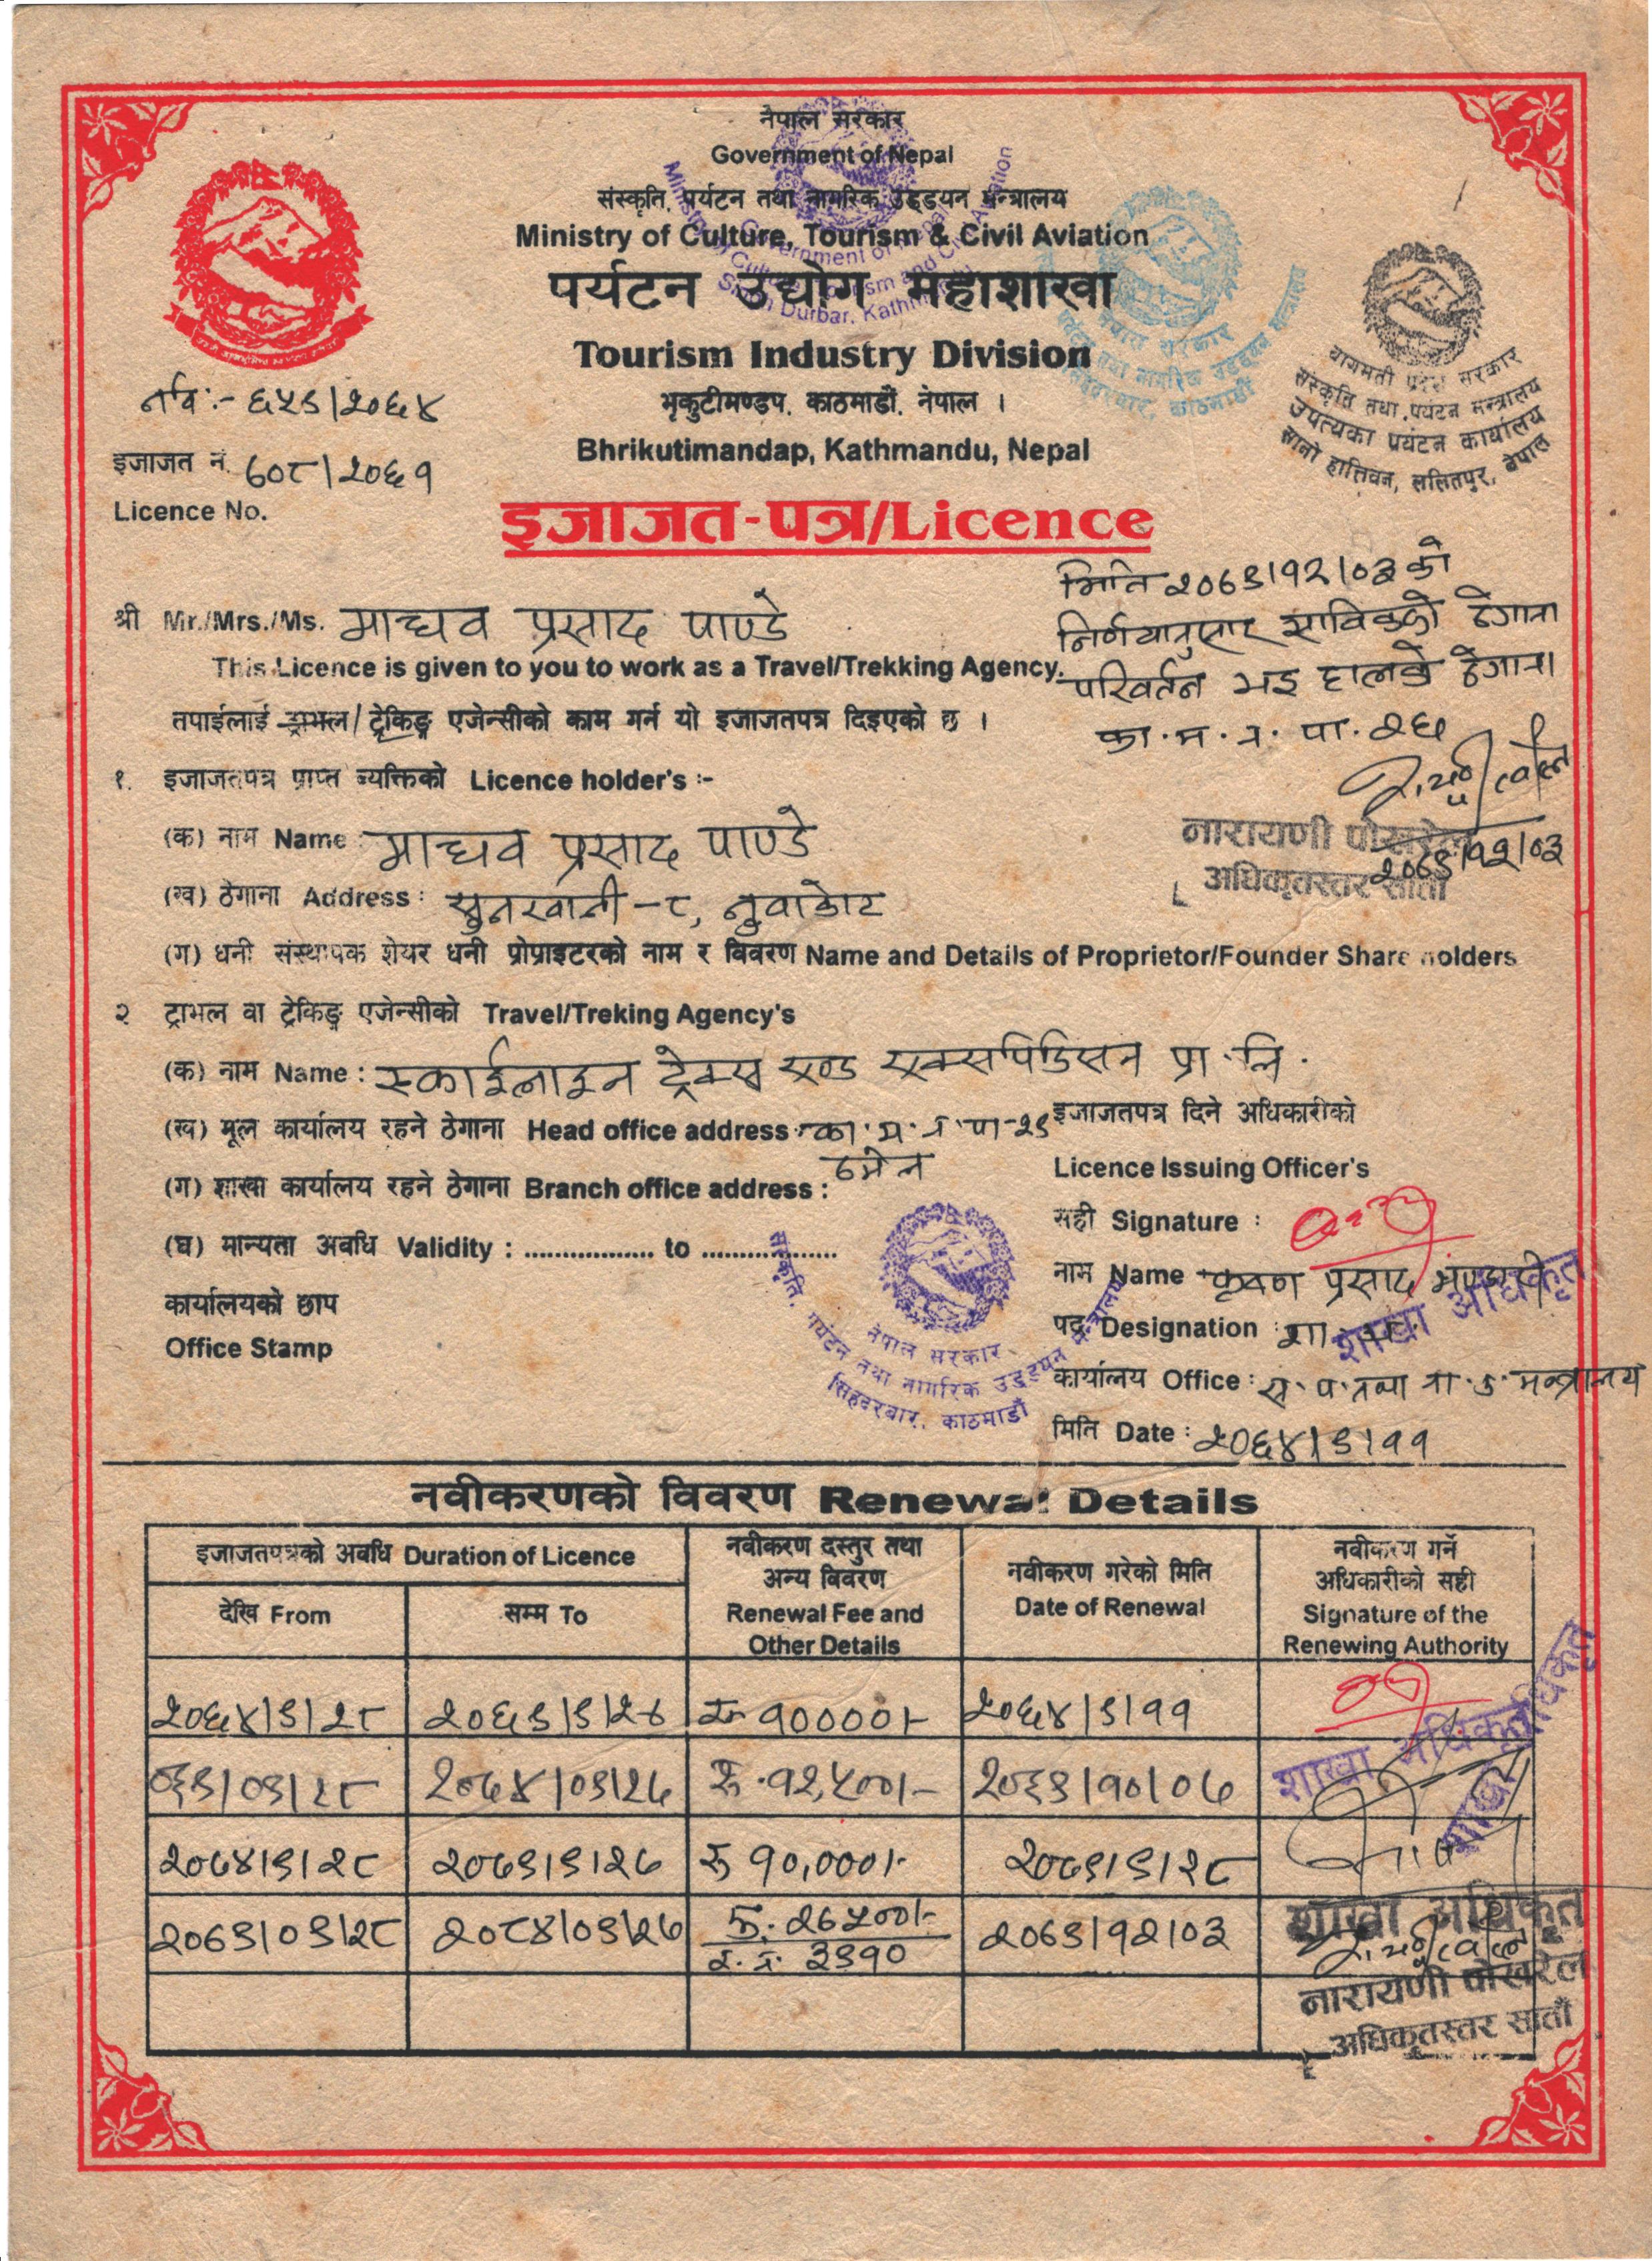 नेपाल सरकार
Government of Nepal
संस्कृति, पर्यटन तथा नागरिक उड्डयन मन्त्रालय
Ministry of Culture, Tourism & Civil Aviation
पर्यटन उद्योग महाशाखा
Tourism Industry Division
भृकुटीमण्डप, काठमाडौं, नेपाल ।
Bhrikutimandap, Kathmandu, Nepal
बागमती प्रदेश सरकार
संस्कृति तथा पर्यटन मन्त्रालय
उपत्यका पर्यटन कार्यालय
सानो हात्तिवन, ललितपुर, नेपाल
६५९/२०६४
इजाजत नं. ७०८/२०६१
Licence No.
इजाजत-पत्र/Licence
मिति २०७९/१२/०३ को
निर्णयानुसार साविकको ठेगाना
परिवर्तन भइ हालको ठेगाना
का.म.न. पा. २६
नारायणी पोखरेल
२०७९/१२/०३
अधिकृतस्तर सातौं
श्री Mr./Mrs./Ms. माधव प्रसाद पाण्डे
This Licence is given to you to work as a Travel/Trekking Agency.
तपाईलाई ट्राभल/ट्रेकिङ्ग एजेन्सीको काम गर्न यो इजाजतपत्र दिइएको छ ।
१. इजाजतपत्र प्राप्त व्यक्तिको Licence holder's :-
(क) नाम Name : माधव प्रसाद पाण्डे
(ख) ठेगाना Address : सुनखानी-८, नुवाकोट
(ग) धनी संस्थापक शेयर धनी प्रोप्राइटरको नाम र विवरण Name and Details of Proprietor/Founder Share holders
२ ट्राभल वा ट्रेकिङ्ग एजेन्सीको Travel/Treking Agency's
(क) नाम Name : स्काईलाइन ट्रेक्स एण्ड एक्सपिडिसन प्रा.लि.
(ख) मूल कार्यालय रहने ठेगाना Head office address : का.म.न.पा-२९
ठमेल
(ग) शाखा कार्यालय रहने ठेगाना Branch office address :
(घ) मान्यता अवधि Validity : ................. to ..................
कार्यालयको छाप
Office Stamp
नेपाल सरकार
संस्कृति, पर्यटन तथा नागरिक उड्डयन मन्त्रालय
सिंहदरबार, काठमाडौं
इजाजतपत्र दिने अधिकारीको
Licence Issuing Officer's
सही Signature :
नाम Name कृष्ण प्रसाद भण्डारी
शाखा अधिकृत
पद Designation : शा.अ.
कार्यालय Office : सं.प.तथा ना.उ.मन्त्रालय
मिति Date : २०६४/९/११
नवीकरणको विवरण Renewal Details
इजाजतपत्रको अवधि Duration of Licence
देखि From
सम्म To
नवीकरण दस्तुर तथा
अन्य विवरण
Renewal Fee and
Other Details
नवीकरण गरेको मिति
Date of Renewal
नवीकरण गर्ने
अधिकारीको सही
Signature of the
Renewing Authority
२०६४/९/२८ २०६९/९/२७ रु १००००/- २०६४/९/११
शाखा अधिकृत
०६९/०९/२८ २०७४/०९/२७ रु.१२,५००/- २०६९/१०/०७
शाखा अधिकृत
२०७४/९/२८ २०७९/९/२७ रु १०,०००/- २०७९/९/२८
शाखा अधिकृत
२०७९/०९/२८ २०८४/०९/२७ रु. २७५००/- २०७९/१२/०३
र.न. ३९१०
नारायणी पोखरेल
अधिकृतस्तर सातौं